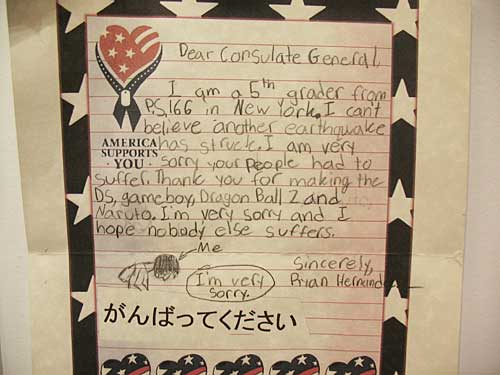 Dear Consulate General,
I am a 5th grader from
P.S. 166 in New York. I can't
believe another earthquake
has struck. I am very
sorry your people had to
suffer. Thank you for making the
DS, gameboy, Dragon Ball Z and
Naruto. I'm very sorry and I
hope nobody else suffers.
AMERICA
SUPPORTS
· YOU ·
Me
I'm very
sorry.
Sincerely,
Brian Hernand
がんばってください